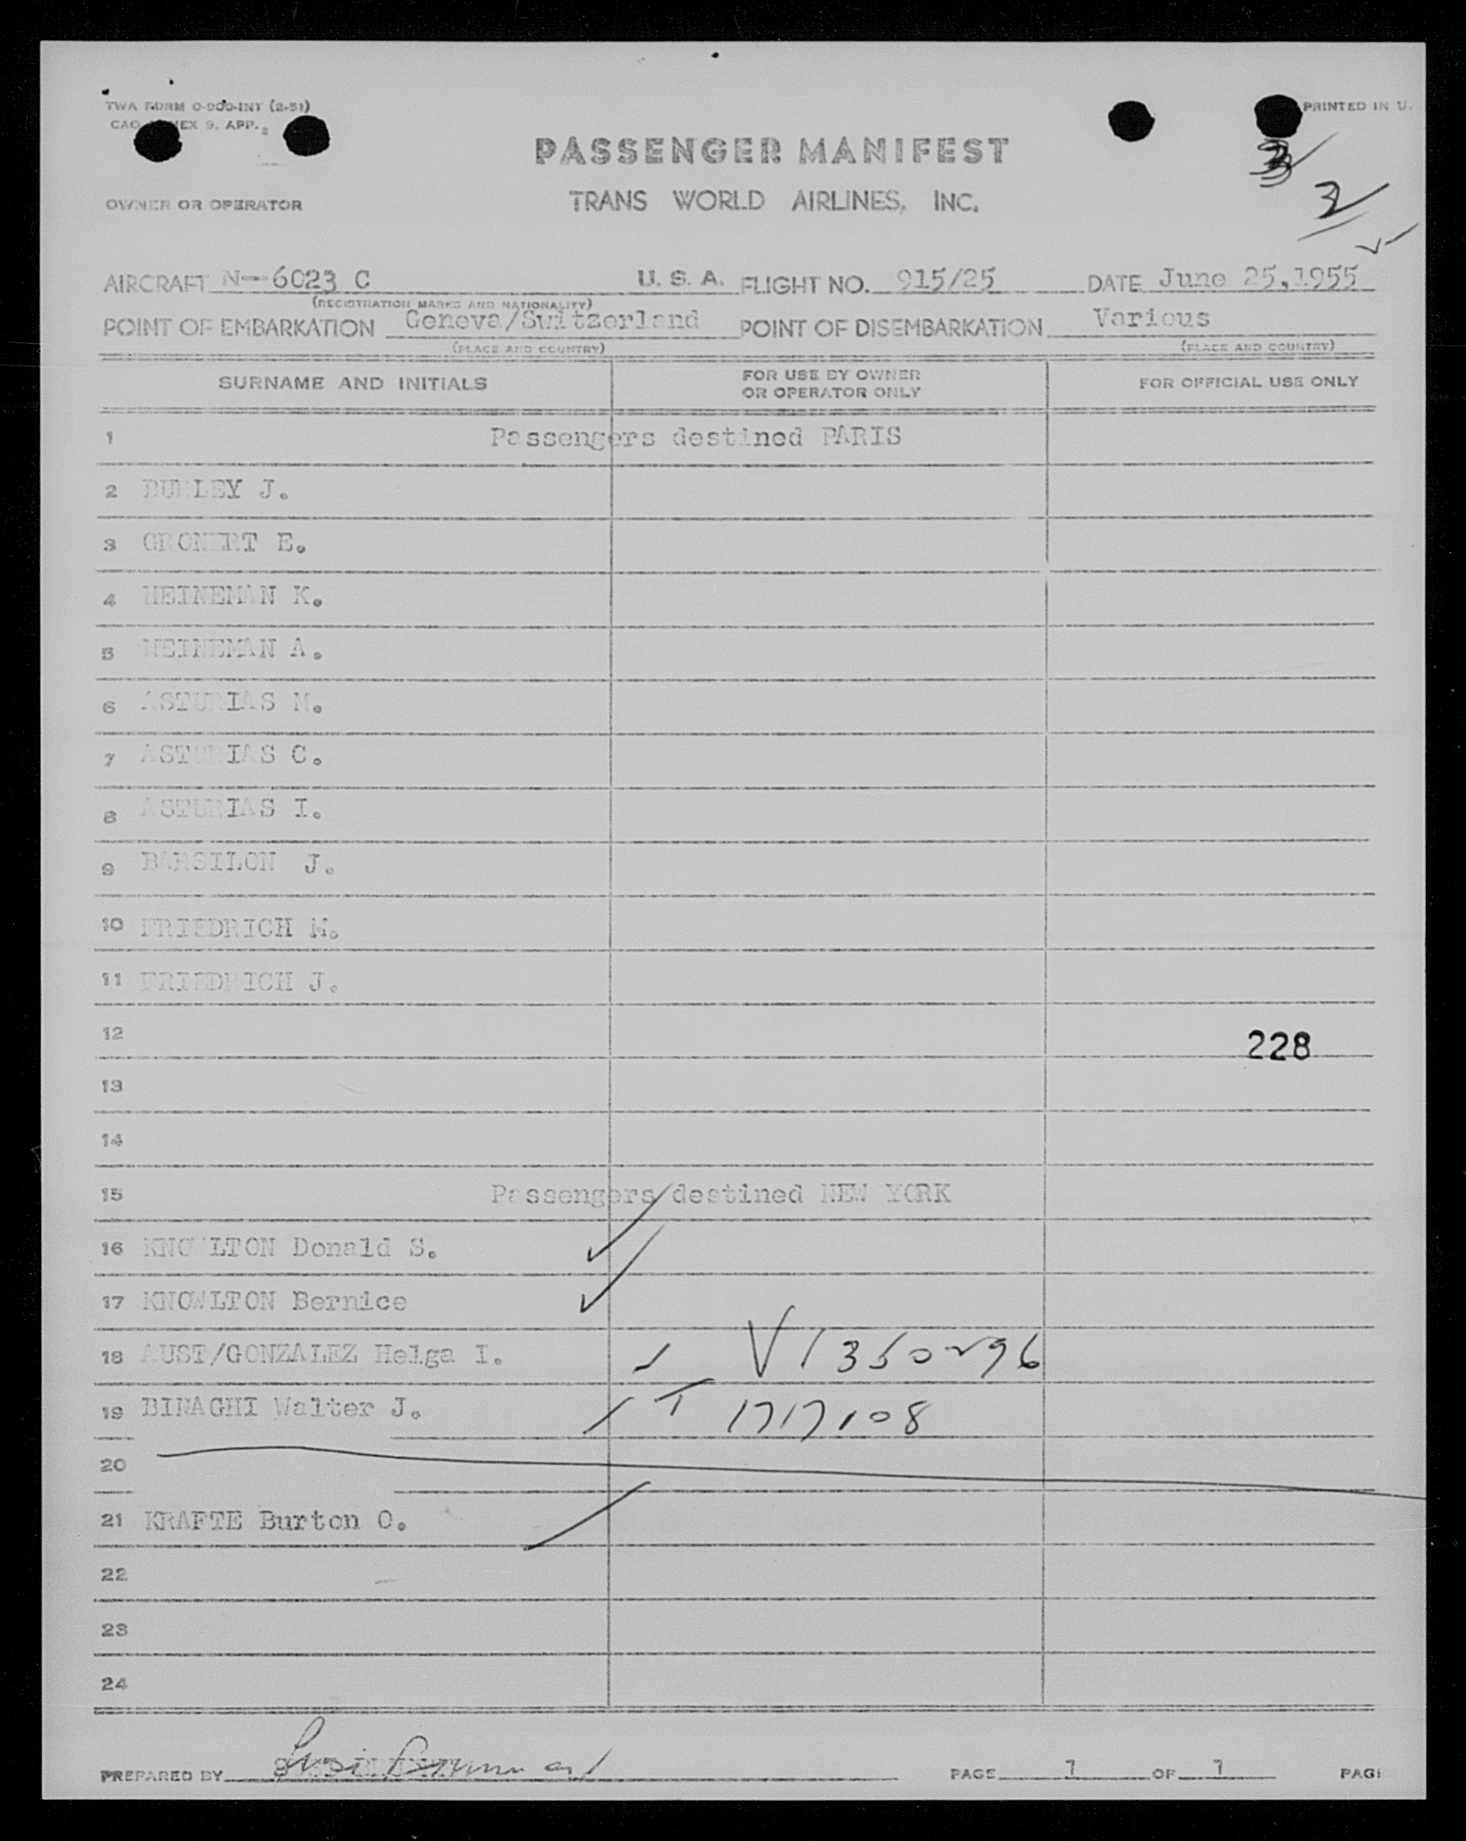 TWA FORM O-900-INT (2-51)
PRINTED IN U.
APP. 2
PASSENGER MANIFEST
OWNER OR OPERATOR
TRANS WORLD AIRLINES, INC.
2
AIRCRAFT N--6023 C U. S. A. FLIGHT NO. 915/25 DATE June 25,1955
(REGISTRATION MARKS AND NATIONALITY)
POINT OF EMBARKATION Geneva/Switzerland POINT OF DISEMBARKATION Various
(PLACE AND COUNTRY) (PLACE AND COUNTRY)
SURNAME AND INITIALS FOR USE BY OWNER OR OPERATOR ONLY FOR OFFICIAL USE ONLY
1 Passengers destined PARIS
2 J.
3 E.
4 HEINEMAN K.
5 HEINEMAN A.
6 ASTURIAS M.
7 ASTURIAS C.
8 ASTURIAS I.
9 BARSILON J.
10 FRIEDRICH M.
11 FRIEDRICH J.
12
228
13
14
15 Passengers destined NEW YORK
16 KNOWLTON Donald S.
17 KNOWLTON Bernice
18 AUST/GONZALEZ Helga I. ✓ V1350296
19 BINAGHI Walter J. T 1717108
20
21 KRAFTE Burton O.
22
23
24
PREPARED BY PAGE 1 OF 1 PAG